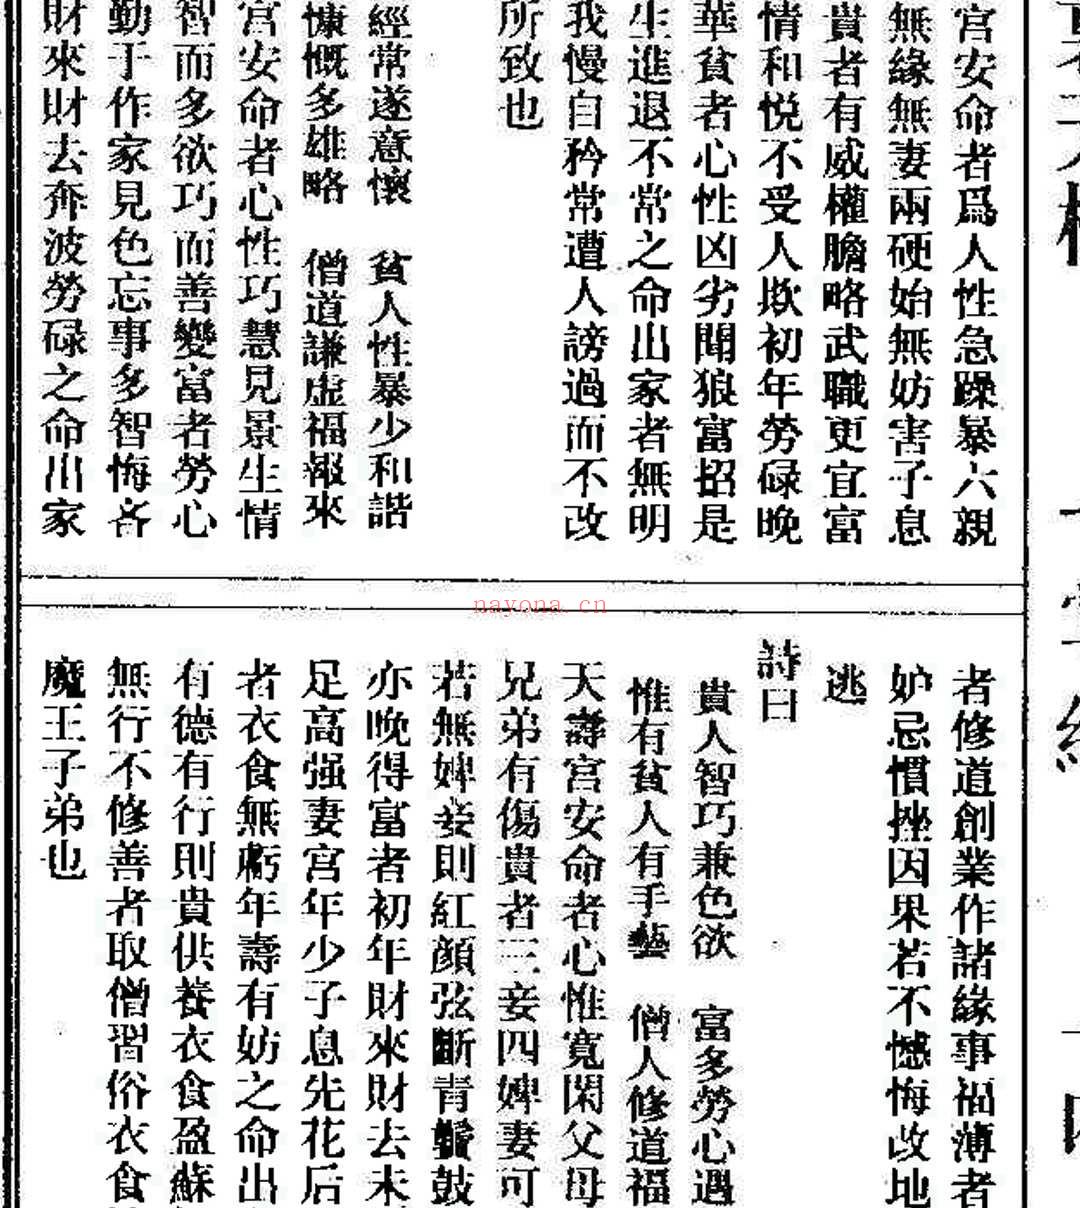 宮安命者爲人性急躁暴六親
無緣無妻兩硬始無妨害子息
貴者有威權膽略武職更宜富
情和悦不受人欺初年勞碌晚
華貧者心性凶劣鬧狼富招是
生進退不常之命出家者無明
我慢自矜常遭人謗過而不改
所致也
經常遂意懷　貧人性暴少和諧
慷慨多雄略　僧道謙虛福報來
宮安命者心性巧慧見景生情
智而多欲巧而善變富者勞心
勤于作家見色忘事多智悔吝
財來財去奔波勞碌之命出家
nayona.cn
者修道創業作諸緣事福薄者
妒忌慣挫因果若不憾悔改地
逃
詩曰
貴人智巧兼色欲　富多勞心遇
惟有貧人有手藝　僧人修道福
天壽宮安命者心惟寬閑父母
兄弟有傷貴者三妾四婢妻可
若無婢妾則紅顔弦斷青鬢鼓
亦晚得富者初年財來財去未
足高强妻宮年少子息先花后
者衣食無虧年壽有妨之命出
有德有行則貴供養衣食盈蘇
無行不修善者取僧習俗衣食
魔王子弟也